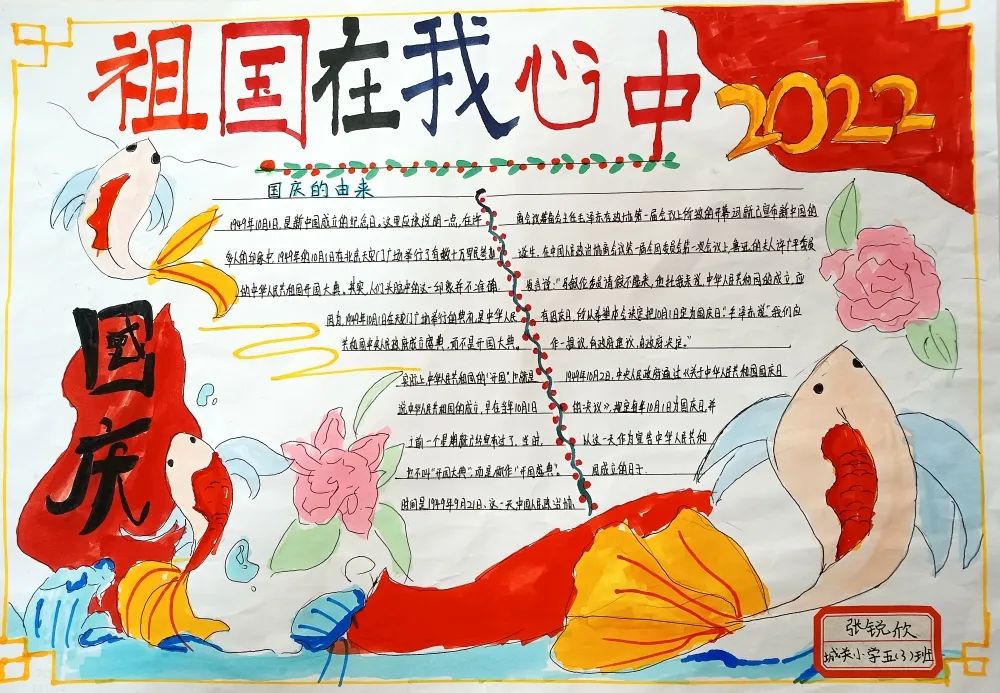 祖国在我心中
2022
国庆的由来
1949年10月1日,是新中国成立的纪念日。这里应该说明一点,在许
多人的印象中,1949年的10月1日在北京天安门广场举行了有数十万军民参加
的中华人民共和国开国大典。其实,人们头脑中的这一印象并不准确。
因为,1949年10月1日在天安门广场举行的典礼是中华人民
共和国中央人民政府成立盛典,而不是开国大典。
实际上,中华人民共和国的“开国”,也就是
说中华人民共和国的成立,早在当年10月1日
之前一个星期就已经宣布过了。当时,
也不叫“开国大典”,而是做作“开国盛典”。
时间是1949年9月21日。这一天,中国人民政治协
商会议筹备会主任毛泽东在政协第一届会议上所致的开幕词就已宣布新中国的
诞生。在中国人民政治协商会议第一届全国委员会第一次会议上,鲁迅的夫人许广平委员
发言说:“马叙伦委员请假不能来,他托我来说,中华人民共和国的成立,应
有国庆日,所以希望本会决定把10月1日定为国庆日。”毛泽东说“我们应
作一提议,向政府建议,由政府决定。”
1949年10月2日,中央人民政府通过《关于中华人民共和国国庆日
的决议》,规定每年10月1日为国庆日,并
以这一天作为宣告中华人民共和
国成立的日子.
國庆
张锐欣
城关小学五(3)班